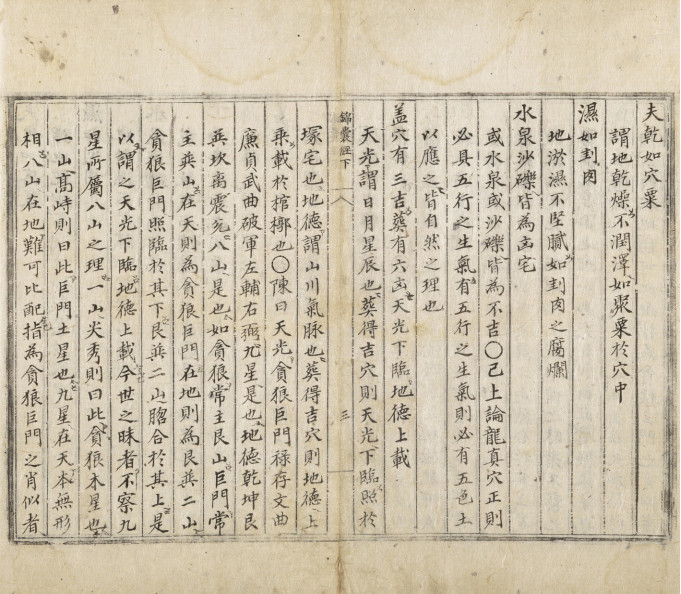 夫乾如穴粟
謂地乾燥不潤澤如聚粟於穴中
濕如刲肉
地淤濕不堅膩如刲肉之腐爛
水泉沙礫皆為凶宅
或水泉或沙礫皆為不吉〇已上論龍真穴正則
必具五行之生氣有五行之生氣則必有五色土
以應之皆自然之理也
盖穴有三吉葬有六凶天光下臨地德上載
天光謂日月星辰也葬得吉穴則天光下臨照於
錦囊經下 三
塚宅也地德謂山川氣脉也葬得吉穴則地德上
乘載於棺槨也〇陳曰天光貪狼巨門祿存文曲
廉貞武曲破軍左輔右弼九星是也地德乾坤艮
巽坎离震兌八山是也如貪狼常主艮山巨門常
主巽山在天則為貪狼巨門在地則為艮巽二山
貪狼巨門照臨於其下艮巽二山合於其上是
以謂之天光下臨地德上載今世之昧者不察九
星所屬八山之理一山尖秀則曰此貪狼木星也
一山髙峙則曰此巨門土星也九星在天本無形
相八山在地難可比配指為貪狼巨門之肖似者